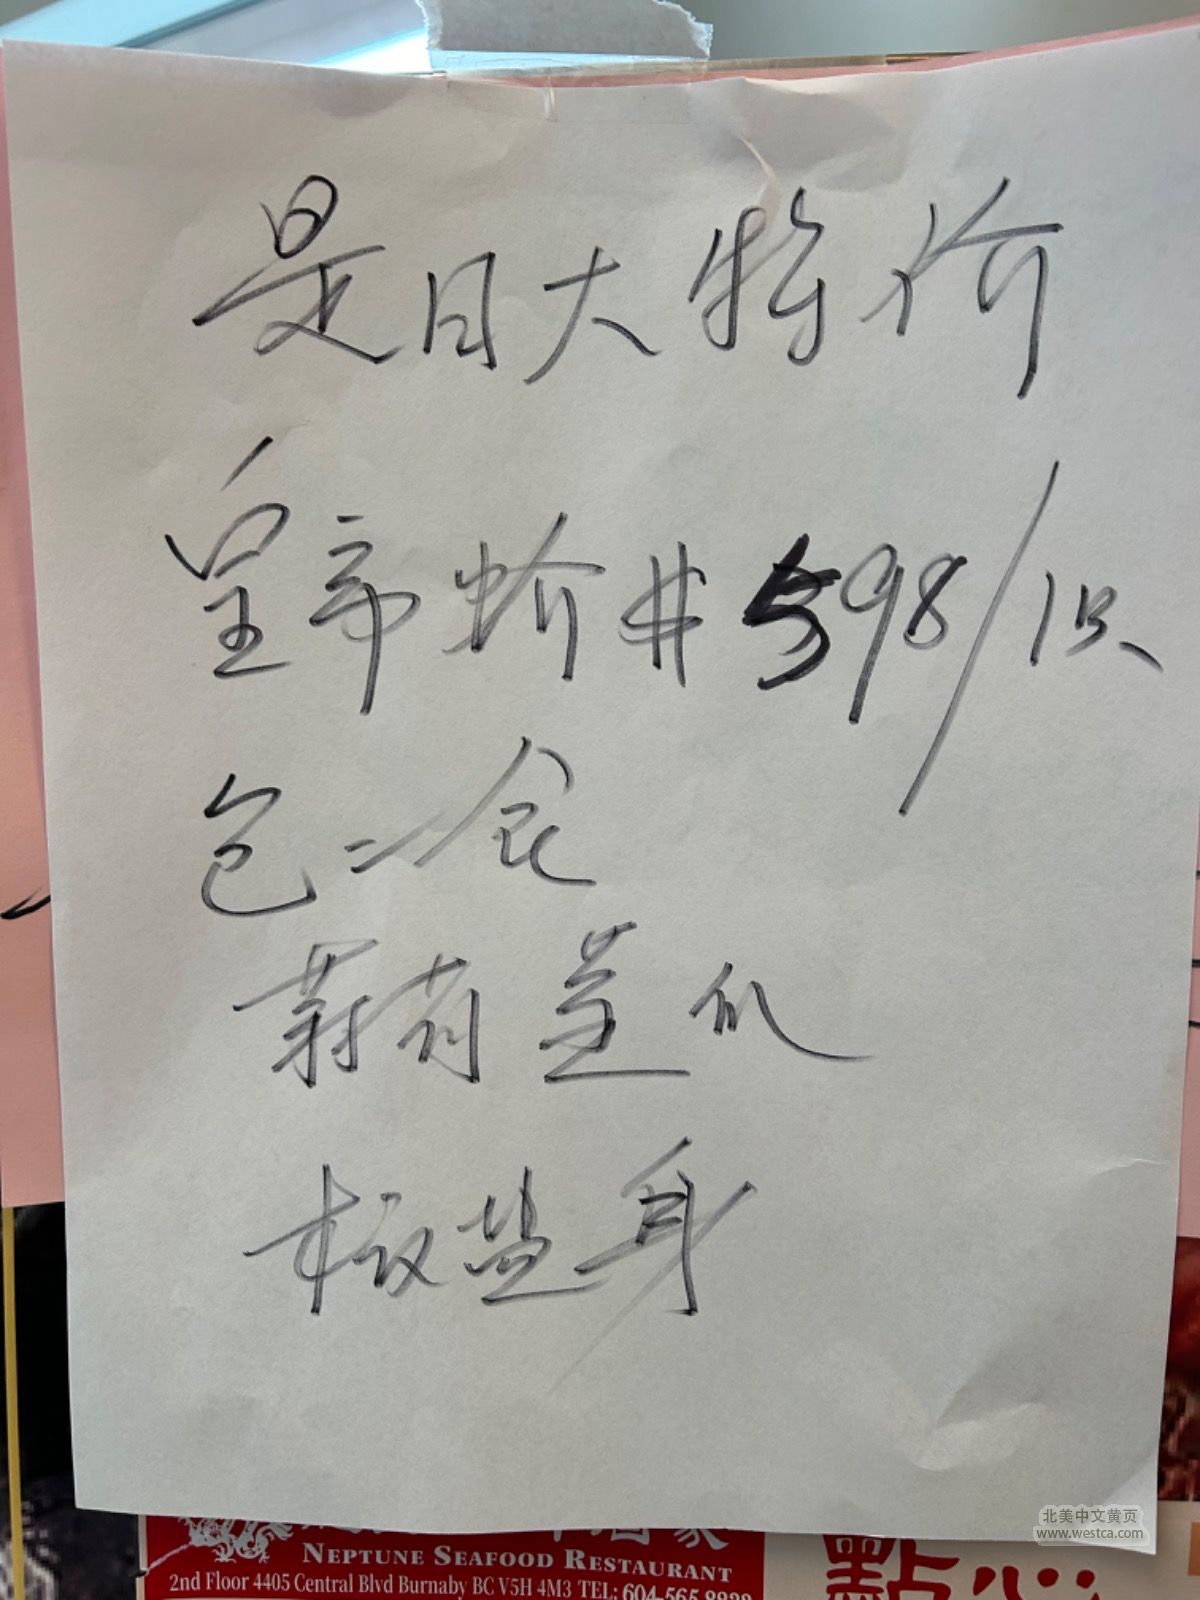 是日大特价
皇帝蚧 # 598/1只
包二食
蒜茸蒸爪
椒盐身
NEPTUNE SEAFOOD RESTAURANT
2nd Floor 4405 Central Blvd Burnaby BC V5H 4M3 TEL: 604-565-8888
點心
北美中文黄页
www.westca.com